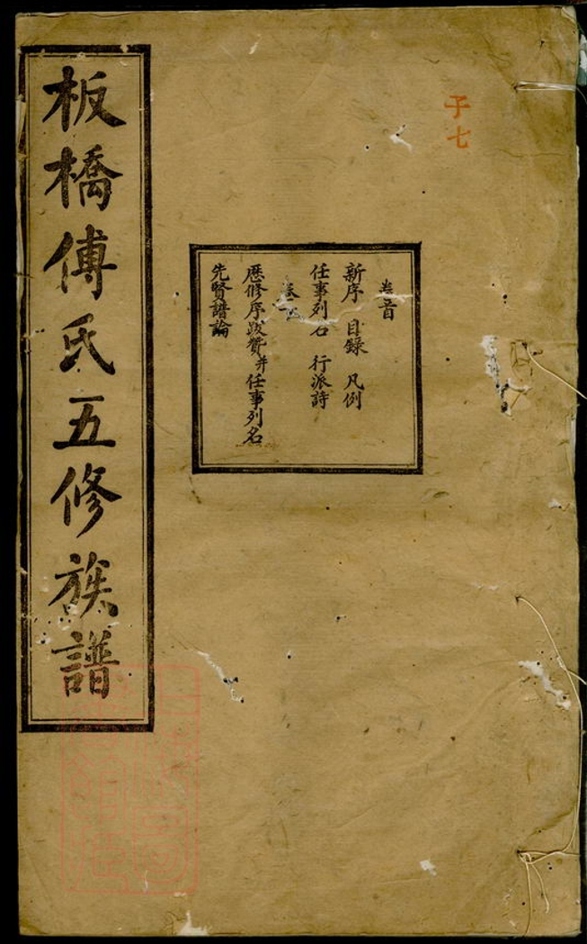 板橋傅氏五修族譜
于七
卷首
新序 目錄 凡例
任事列名 行派詩
歷修序跋贊并任事列名
先賢譜論